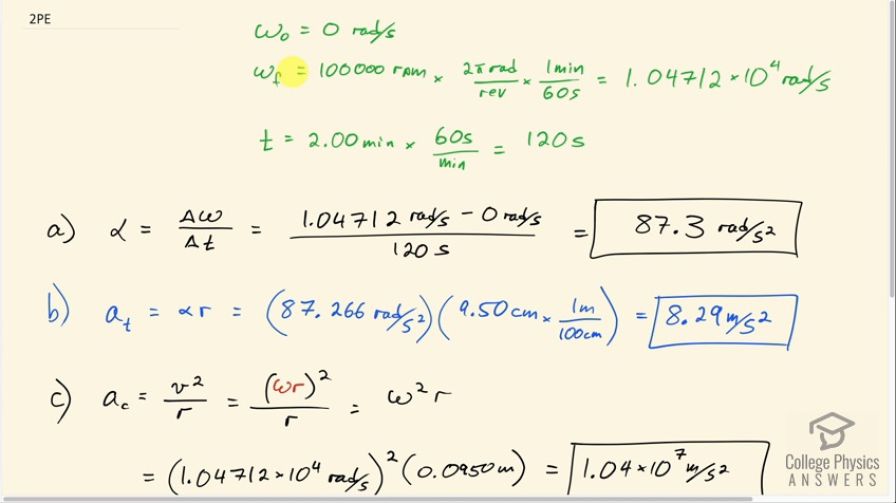 2PE
ω₀ = 0 rad/s
ωf = 100000 rpm × 2π rad/rev × 1min/60s = 1.04712 × 10⁴ rad/s
t = 2.00 min × 60s/min = 120 s
a) α = Δω/Δt = (1.04712 rad/s − 0 rad/s)/120 s = 87.3 rad/s²
b) aₜ = αr = (87.266 rad/s²)(9.50 cm × 1m/100cm) = 8.29 m/s²
c) a꜀ = v²/r = (ωr)²/r = ω² r
= (1.04712×10⁴ rad/s)² (0.0950 m) = 1.04 × 10⁷ m/s²
College Physics
ANSWERS